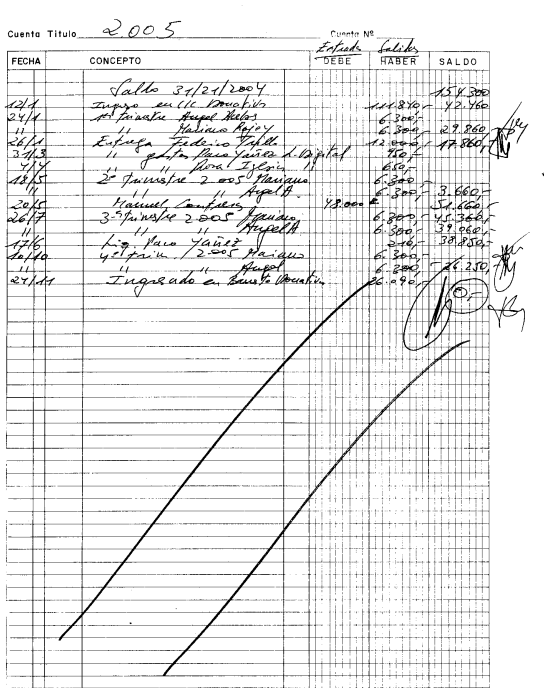 Cuenta Título 2005 Cuenta Nº
Entradas Salidas
FECHA CONCEPTO DEBE HABER SALDO
Saldo 31/21/2004 154.300
12/1 Ingreso en c/c Donativos 111.840,- 42.460
24/1 1er trimestre Angel 6.300,-
" " Mariano Rajoy 6.300,- 29.860,-
26/1 Entrega Federico 12.000,- 17.860,-
31/3 " gastos Paco Yáñez L. Digital 950,-
4/4 " Rosa Iglesias " 650,-
18/5 2º trimestre 2005 Mariano 6.300,-
" " " Angel A. 6.300,- 3.660,-
20/5 Manuel Contreras 48.000 51.660,-
26/7 3º trimestre 2005 Mariano 6.300,- 45.360,-
" " Angel A 6.300,- 39.060,-
17/6 Liq. Paco Yáñez 210,- 38.850,-
10/10 4º trim. / 2005 Mariano 6.300,-
" " Angel 6.300,- 26.250,-
24/11 Ingresado en Banesto Donativos 26.090,-
0,-